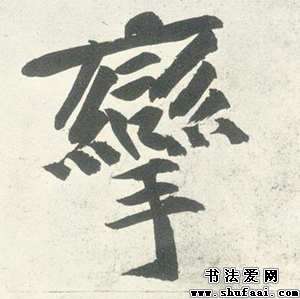 攣
书法爱网
www.shufaai.com